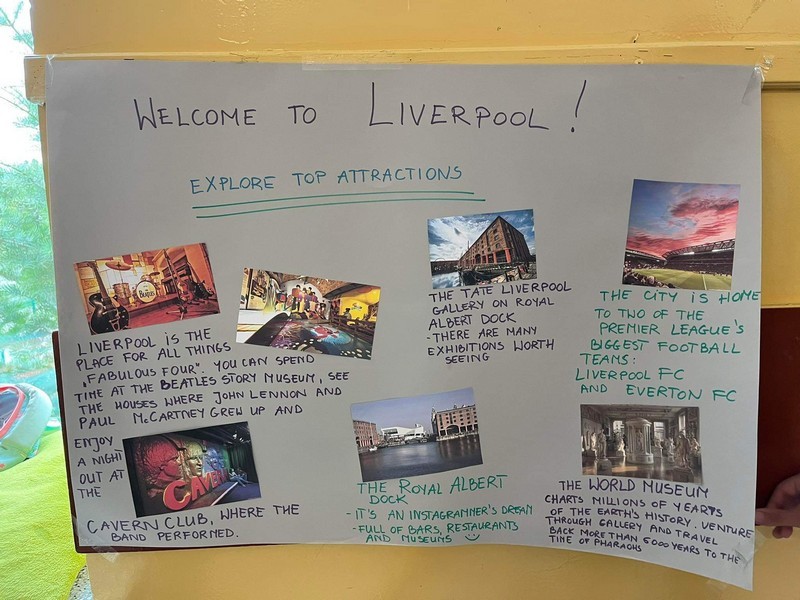 WELCOME TO LIVERPOOL!
EXPLORE TOP ATTRACTIONS
THE BEATLES
LIVERPOOL IS THE
PLACE FOR ALL THINGS
„FABULOUS FOUR". YOU CAN SPEND
TIME AT THE BEATLES STORY MUSEUM, SEE
THE HOUSES WHERE JOHN LENNON AND
PAUL McCARTNEY GREW UP AND
ENJOY
A NIGHT
OUT AT
THE
CAVERN
CAVERN CLUB, WHERE THE
BAND PERFORMED.
THE TATE LIVERPOOL
GALLERY ON ROYAL
ALBERT DOCK
- THERE ARE MANY
EXHIBITIONS WORTH
SEEING
THE ROYAL ALBERT
DOCK
- IT'S AN INSTAGRAMMER'S DREAM
- FULL OF BARS, RESTAURANTS
AND MUSEUMS
THE CITY IS HOME
TO TWO OF THE
PREMIER LEAGUE'S
BIGGEST FOOTBALL
TEAMS:
LIVERPOOL FC
AND EVERTON FC
THE WORLD MUSEUM
CHARTS MILLIONS OF YEARS
OF THE EARTH'S HISTORY. VENTURE
THROUGH GALLERY AND TRAVEL
BACK MORE THAN 5000 YEARS TO THE
TIME OF PHARAOHS